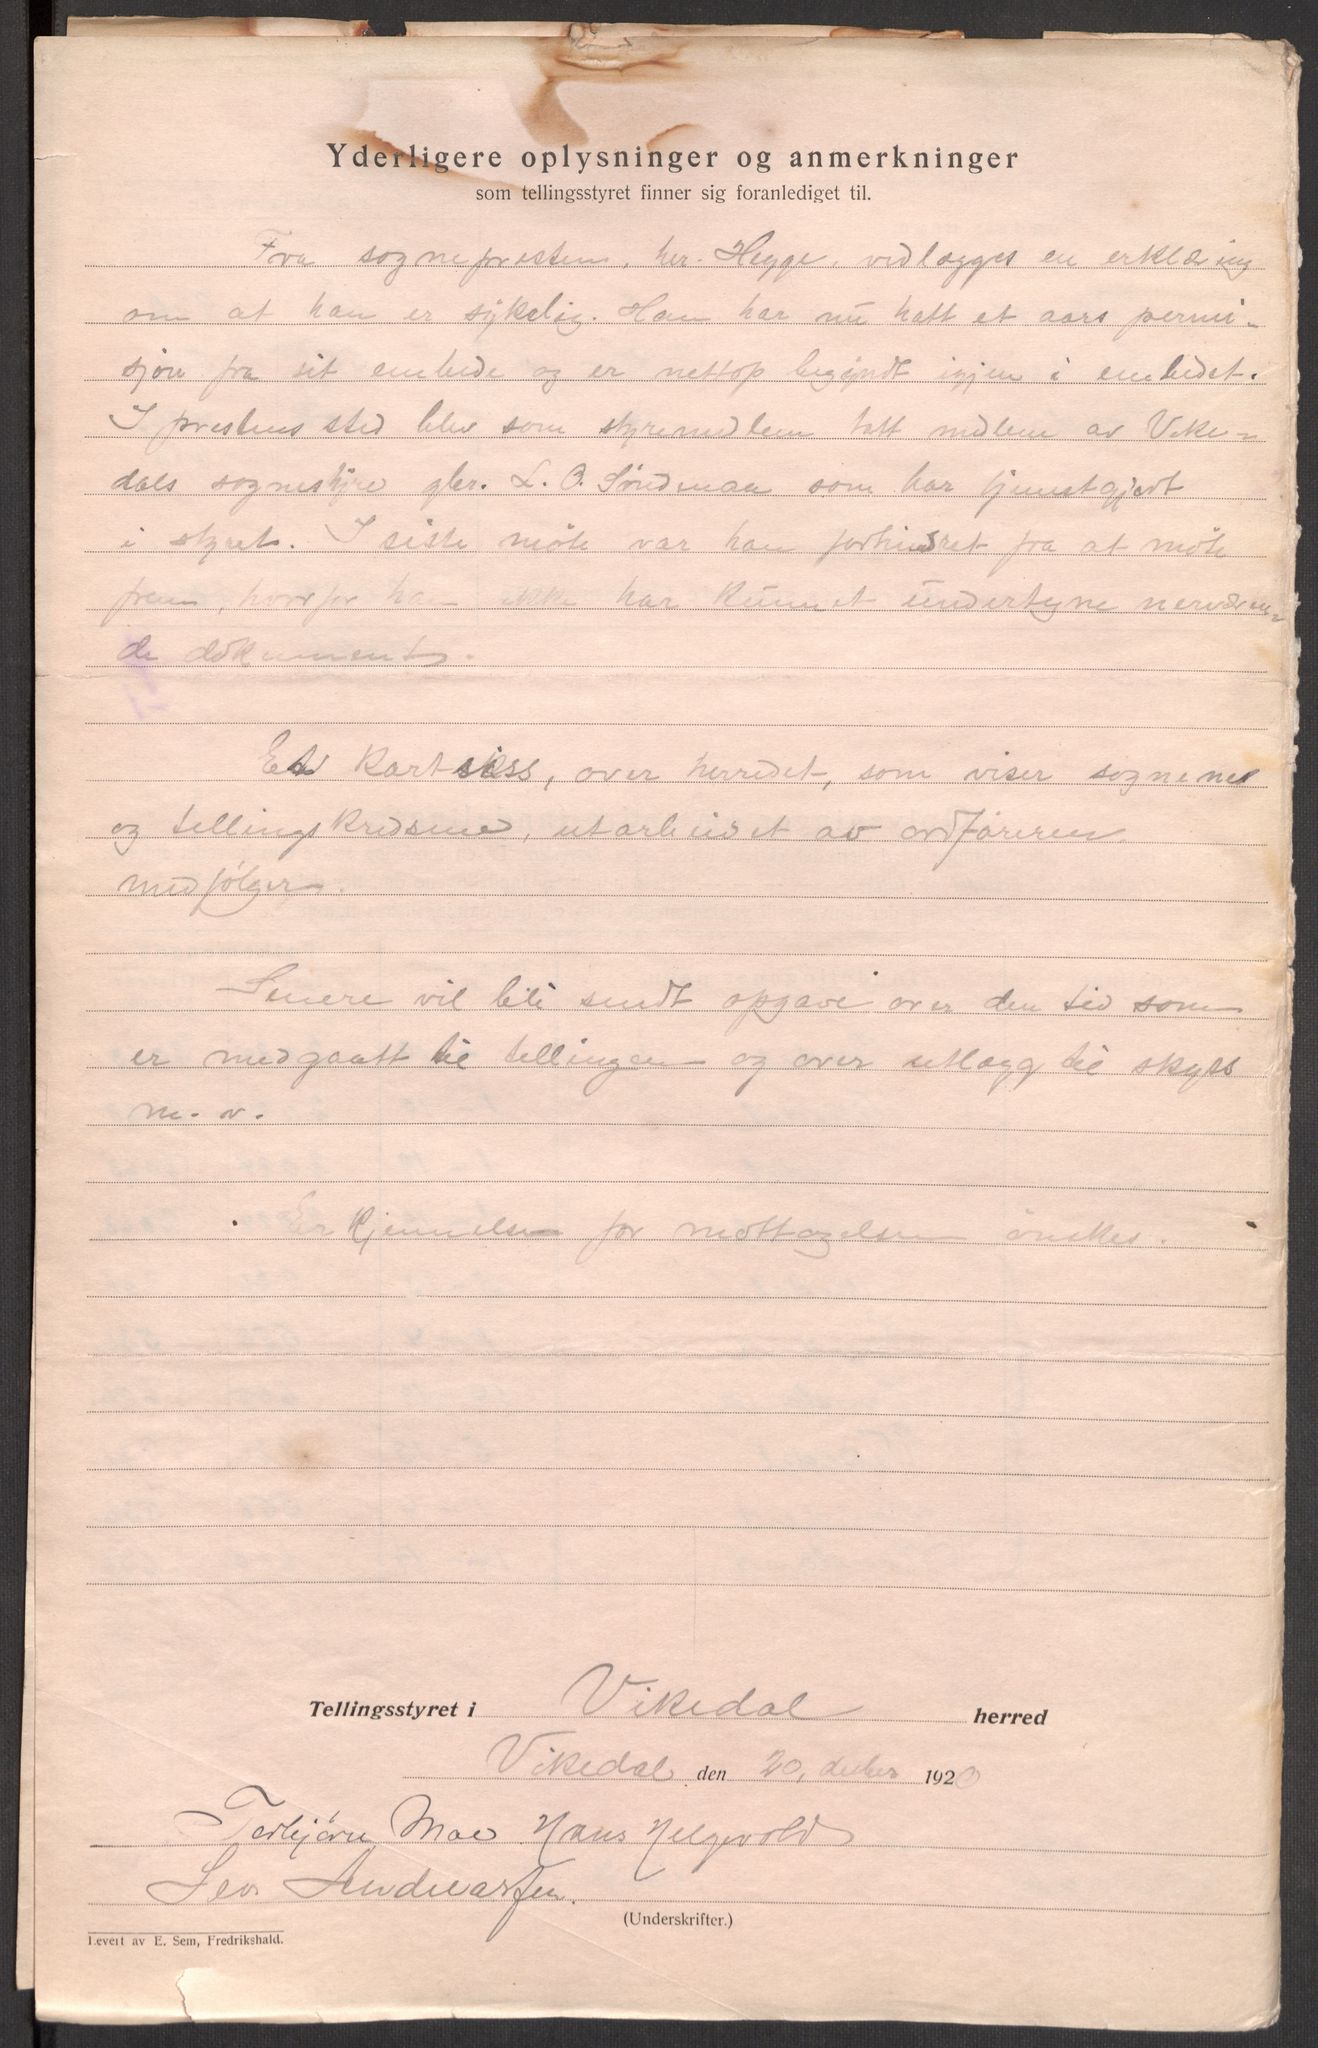 Yderligere oplysninger og anmerkninger
som tellingsstyret finner sig foranlediget til.
Fra sogneprosten, her. Hegge, vedlægges en erklæring
om at han er sykelig. Han har nu hatt et aars permi-
sjon fra sit embede og er nettop begyndt igjen i embedet.
I prestens sted blev som styremedlem tatt medlem av Vike-
dals sognestyre gbr. L. O. Søndenaa som har tjenstgjort
i styret. I siste møte var han forhindret fra at møte
frem, hvorfor han ikke har kunnet undertegne nerværen-
de dokument.
Et kartskiss, over herredet, som viser sognene
og tellingskredsene, utarbeidet av ordføreren
medfølger.
Senere vil bli sendt opgave over den tid som
er medgaatt til tellingen og over utlegg til skyss
m. v.
Erkjennelse for mottagelsen ønskes.
Tellingsstyret i Vikedal herred
Vikedal den 20, decbr 1920
Torbjørn Moe Hans Helgevold
Andreassen.
(Underskrifter.)
Levert av E. Sem, Fredrikshald.